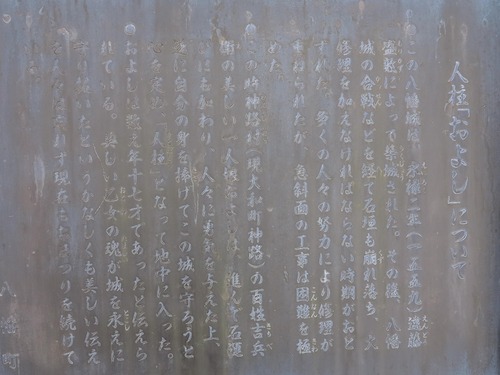 人柱「およし」について
●この八幡城は、永禄二年(一五五九)遠藤
盛数によって築城された。その後、八幡
城の合戦などを経て石垣も崩れ落ち、大
修理を加えなければならない時期がおと
ずれた。多くの人々の努力により修理が
重ねられたが、急斜面の工事は困難を極
めた。
●この時神路村(現大和町神路)の百姓吉兵
衛の美しい一人娘およしは、進んで石運
びに加わり、人々に勇気を与えた上、
遂に自分の身を捧げてこの城を守ろうと
心を定め「人柱」となって地中に入った。
●およしは数え年十七才であったと伝えら
れている。美しい乙女の魂が城を永えに
守り抜いたというかなしくも美しい伝え
現在もおまつりを続けて
八幡町